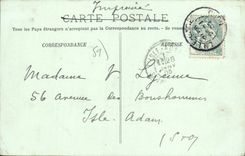 Imprimé
CARTE POSTALE
Tous les Pays étrangers n'acceptent pas la Correspondance au recto.
CORRESPONDANCE
ADRESSE
Madame V Lejeune
56 Avenue des Bonshommes
Isle-Adam.
(S&O)